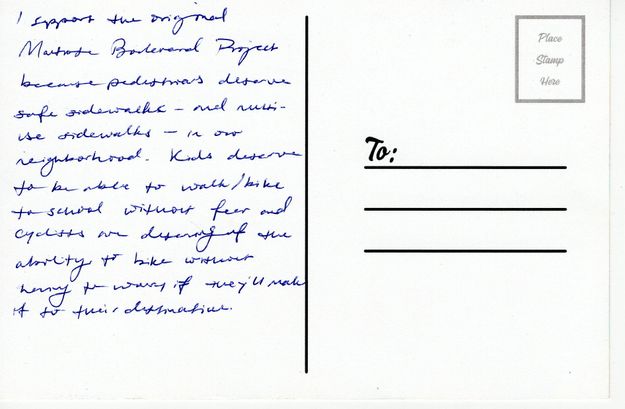 I support the original
Montrose Boulevard Project
because pedestrians deserve
safe sidewalks - and multi-
use sidewalks - in our
neighborhood. Kids deserve
to be able to walk/bike
to school without fear and
cyclists are deserving of the
ability to bike without
having to worry if they'll make
it to their destination.
Place
Stamp
Here
To: